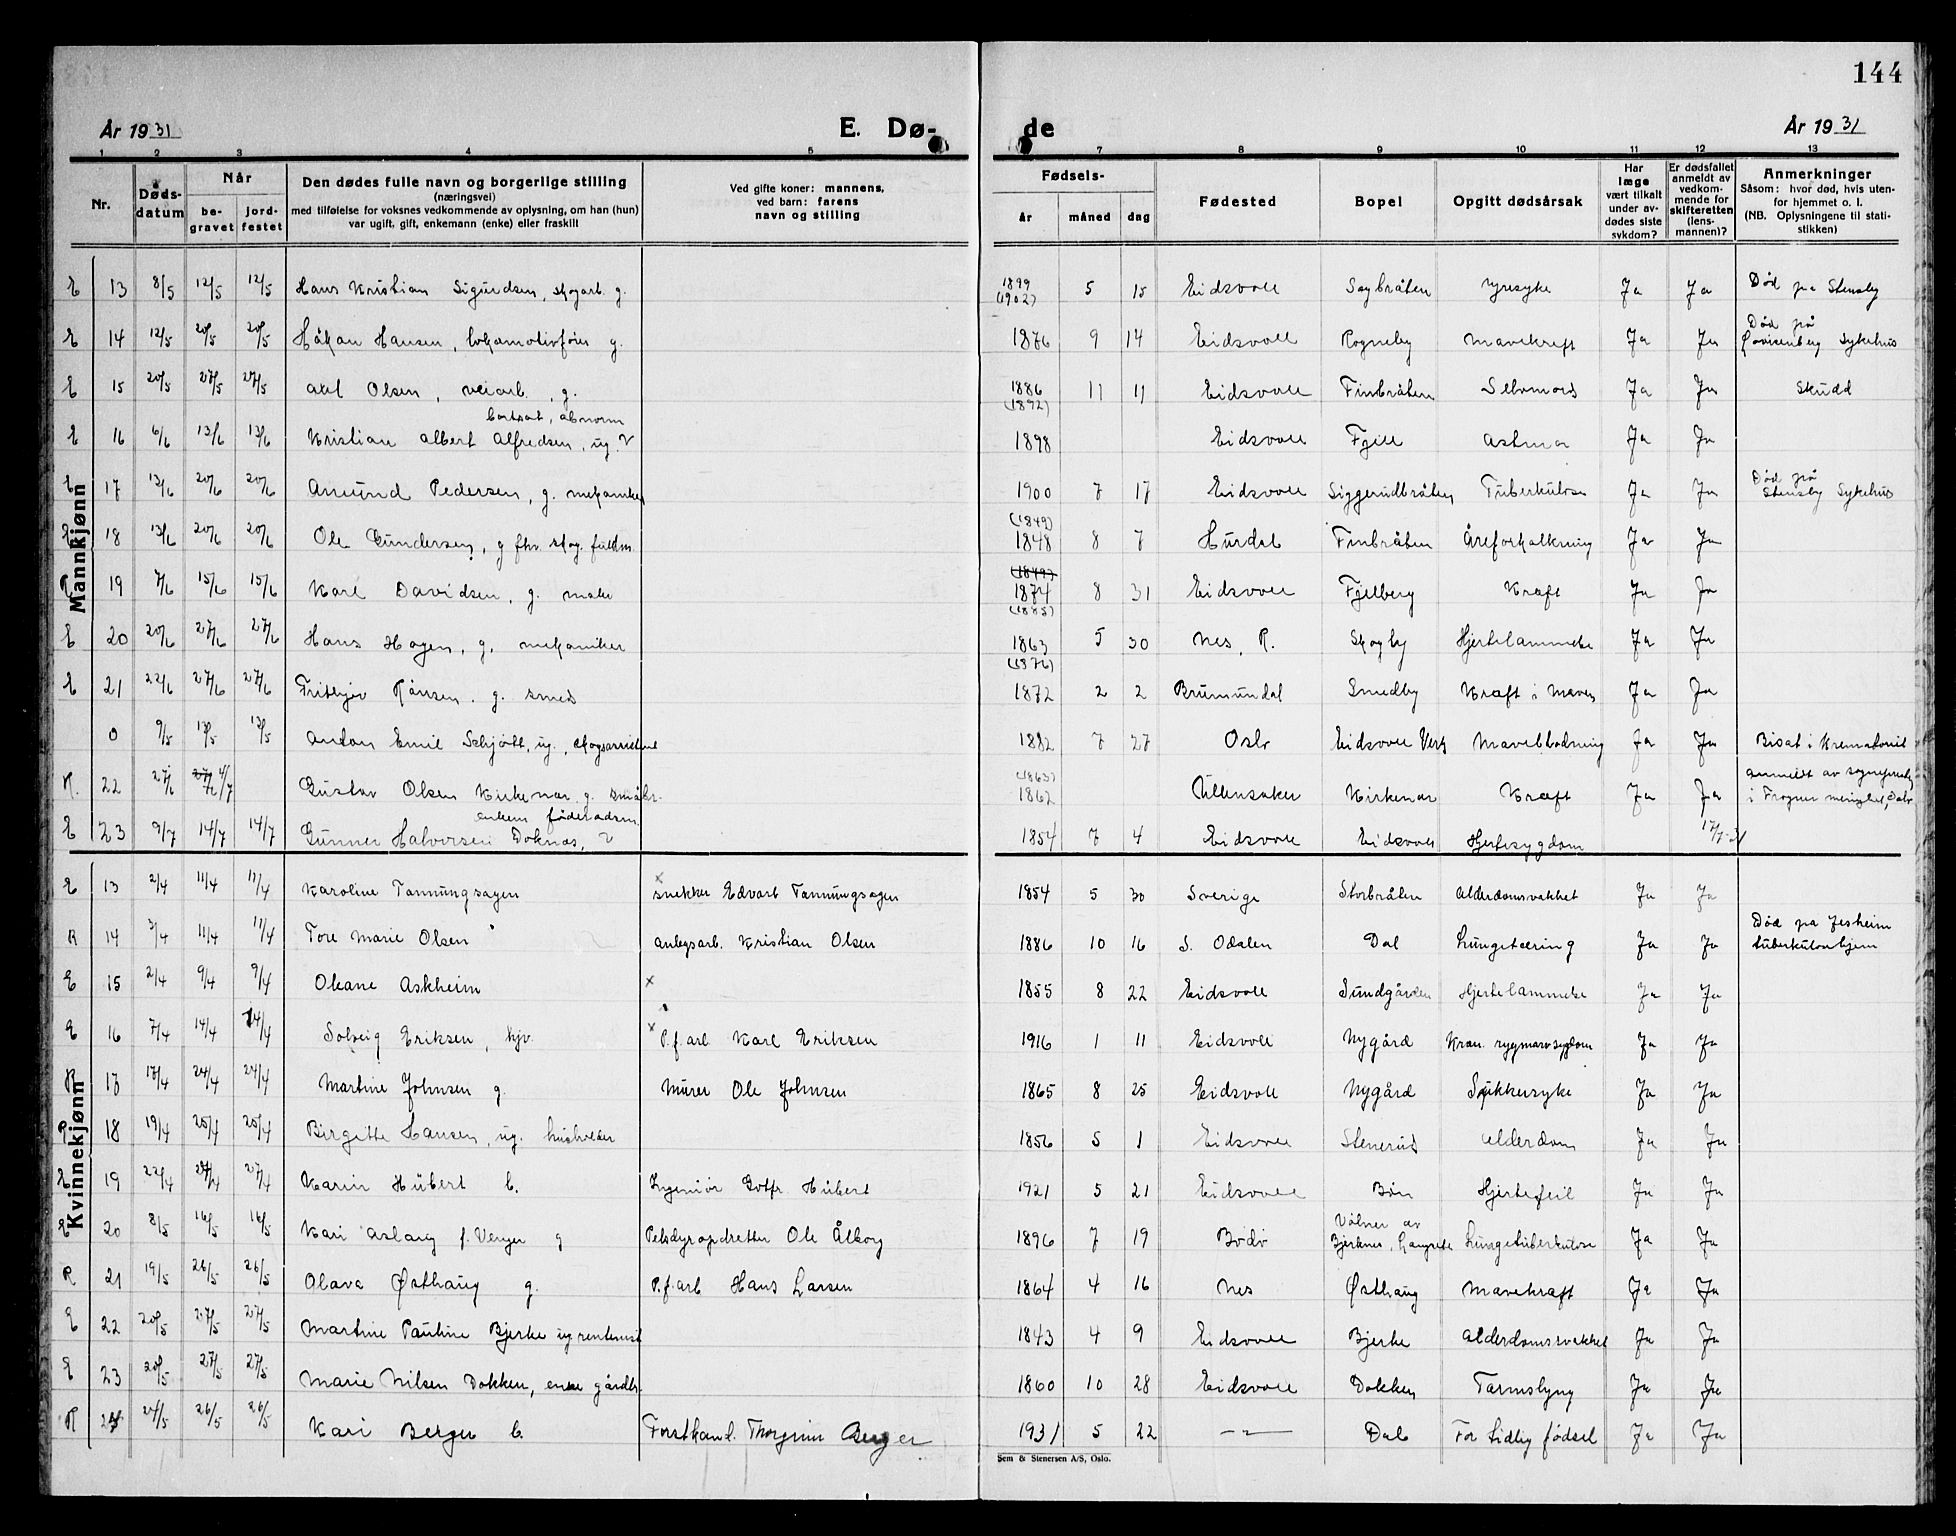 144
År 1931 E. Dø- de År 1931
1 2 3 4 5 7 8 9 10 11 12 13
Nr.
Døds-
datum
Når
be-
gravet
jord-
festet
Den dødes fulle navn og borgerlige stilling
(næringsvei)
med tilføielse for voksnes vedkommende av oplysning, om han (hun)
var ugift, gift, enkemann (enke) eller fraskilt
Ved gifte koner: mannens,
ved barn: farens
navn og stilling
Fødsels-
år måned dag
Fødested
Bopel
Opgitt dødsårsak
Har
læge
vært tilkalt
under av-
dødes siste
sykdom?
Er dødsfallet
anmeldt av
vedkom-
mende for
skifteretten
(lens-
mannen)?
Anmerkninger
Såsom: hvor død, hvis uten-
for hjemmet o. l.
(NB. Oplysningene til stati-
stikken)
Mannkjønn
E 13 8/5 12/5 12/5 Hans Kristian Sigurdsen, skogarb. g. 1899 (1902) 5 15 Eidsvoll Sagbråten nyresyke Ja Ja Død på Stensby
E 14 12/5 20/5 20/5 Håkon Hansen, lokomotivfører g. 1876 9 14 Eidsvoll Rogneby Mavekreft Ja Ja Død på Lovisenberg Sykehus
E 15 20/5 27/5 27/5 Axel Olsen, veiarb. g. 1886 (1892) 11 11 Eidsvoll Finbråten Selvmord Ja Ja Skudd
E 16 6/6 13/6 13/6 Kristian Albert Alfredsen, ug. abnorm 1898 Eidsvoll Fjell Astma Ja Ja
E 17 13/6 20/6 20/6 Amund Pedersen, g. mekaniker 1900 7 17 Eidsvoll Siggerudbråten Tuberkulose Ja Ja Død på Stensby Sykehus
E 18 13/6 20/6 20/6 Ole Gundersen, g fhv. skog. fuldm. (1849) 1848 8 7 Hurdal Finbråten Åreforkalkning Ja Ja
R 19 7/6 15/6 15/6 Karl Davidsen, g. maler (1849) 1874 (1885) 8 31 Eidsvoll Fjelberg Kreft Ja Ja
E 20 20/6 27/6 27/6 Hans Hagen, g. mekaniker 1863 (1876) 5 30 Nes, R. Skogby Hjertelammelse Ja Ja
E 21 22/6 27/6 27/6 Frithjov Rånsen. g. smed 1872 2 2 Brumundal Smedby Kreft i Maven Ja Ja
0 9/5 13/5 13/5 Anton Emil Schjøtt, ug., 1882 7 27 Oslo Eidsvoll Verk Maveblødning Ja Ja Bisat i Krematoriet
R. 22 27/6 27/6 4/7 Gustav Olsen Kirkenær. g. småbr. (1863) 1862 Ullensaker Kirkenær Kreft Ja Ja anmeldt av sogneprest i Frogner menighet, Oslo
E 23 9/7 14/7 14/7 Gunner Halvorsen Doknes, enkem føderådsm. 1854 7 4 Eidsvoll Eidsvoll Hjertesygdom 17/7-31
Kvinnekjønn
E 13 2/4 11/4 11/4 Karoline Tannungsagen x snekker Edvart Tannungsagen 1854 5 30 Sverige Storbråten Alderdomsvakhet Ja Ja
R 14 3/4 11/4 11/4 Tore Marie Olsen anlegsarb. Kristian Olsen 1886 10 16 S. Odalen Dal Lungetæring Ja Ja Død på Jesheim tuberkulosehjem
E 15 2/4 9/4 9/4 Oleane Askheim x 1855 8 22 Eidsvoll Sundgården Hjertelammelse Ja Ja
E 16 7/4 14/4 14/4 Solveig Eriksen, hjv. x P.f. arb Karl Eriksen 1916 1 11 Eidsvoll Nygård Kron. rygmarvsygdom Ja Ja
R 17 17/4 24/4 24/4 Martine Johnsen g. Murer Ole Johnsen 1865 8 25 Eidsvoll Nygård Sukkersyke Ja Ja
R 18 19/4 25/4 25/4 Birgitte Hansen, ug. husholder 1856 5 1 Eidsvoll Stenerud Alderdom Ja Ja
E 19 22/4 27/4 27/4 Karin Hübert b. Ingeniør Gotfr. Hübert 1921 5 21 Eidsvoll Bøn Hjertefeil Ja Ja
E 20 8/5 16/5 16/5 Kari Aslaug f. Venger g Pelsdyropdretter Ole Ålborg 1896 7 19 Bodø Bjerknes, Langset Lungetuberkulose Ja Ja
R 21 19/5 26/5 26/5 Olava Østhaug g. P.f. arb Hans Larsen 1864 4 16 Nes Østhaug Mavekraft Ja Ja
E 22 20/5 27/5 27/5 Martine Pauline Bjerke ug rentenist 1843 4 9 Eidsvoll Bjerke Alderdomsvakhet Ja Ja
E 23 20/5 27/5 27/5 Marie Nilsen Dokken, enke gårdbr. 1860 10 28 Eidsvoll Dokken Tarmslyng Ja Ja
R 24 24/5 26/5 26/5 Kari Berger b. Forstkand. Thorgrim Berger 1931 5 22 —"— Dal For tidlig fødsel Ja Ja
Sem & Stenersen A/S, Oslo.